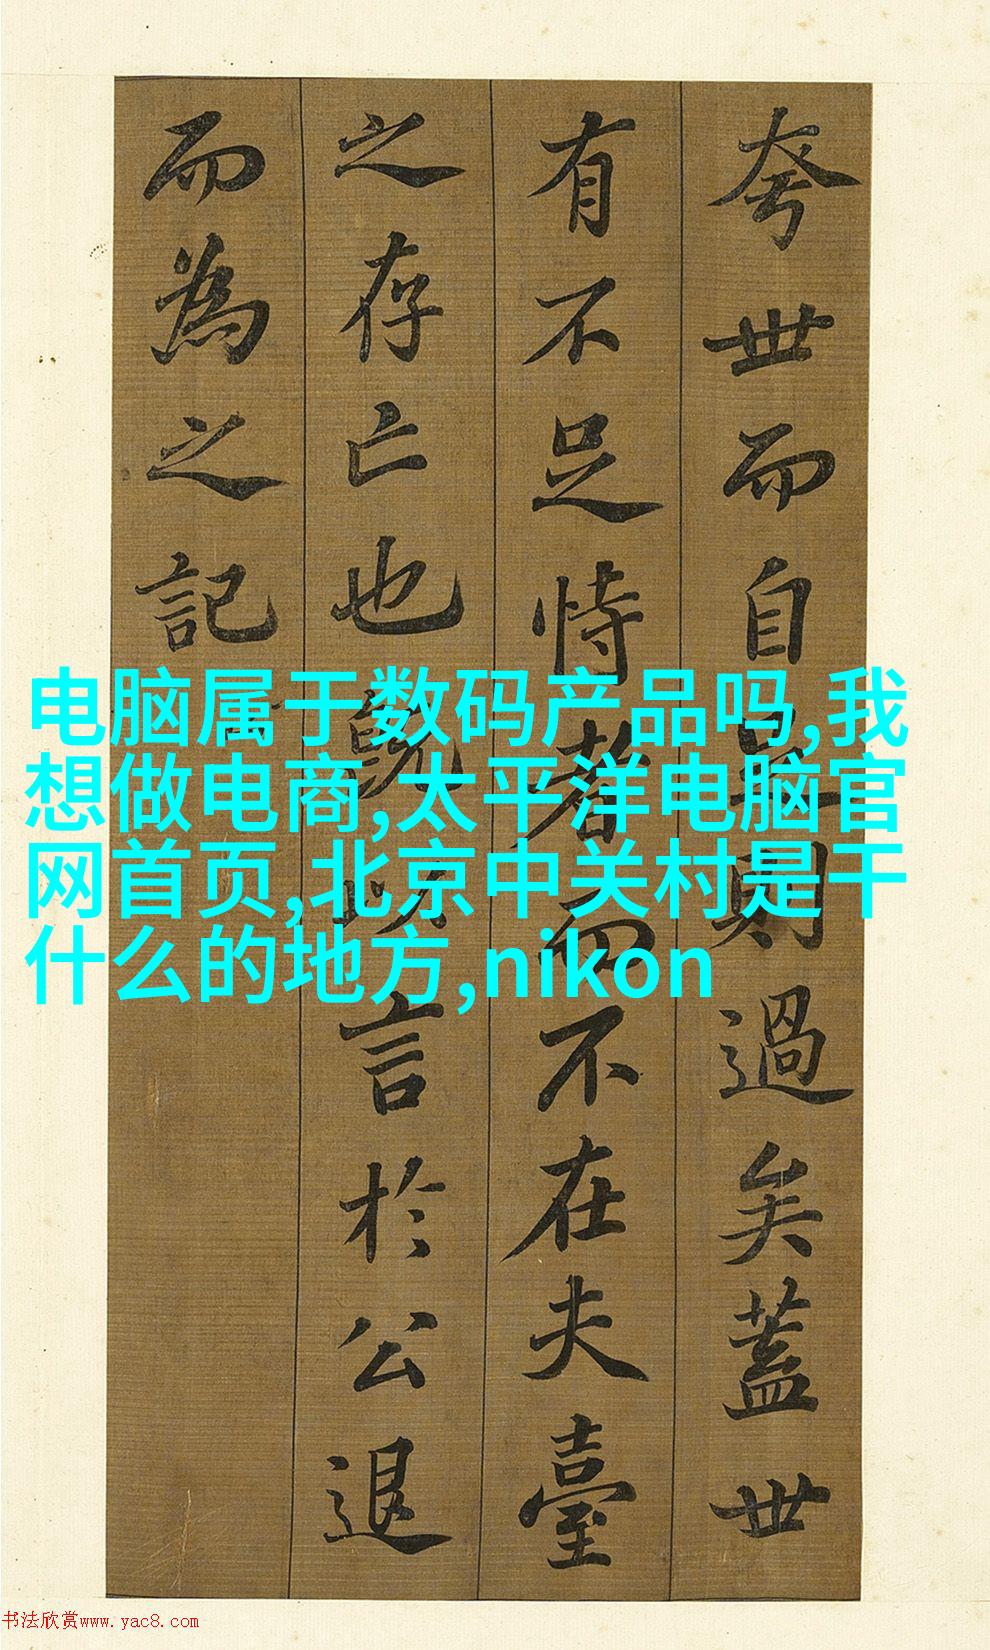 夸世而自足則過矣蓋世
有不足恃者而不在夫臺
之存亡也既以言於公退
而為之記
电脑属于数码产品吗,我
想做电商,太平洋电脑官
网首页,北京中关村是干
什么的地方,nikon
书法欣赏www.yac8.com